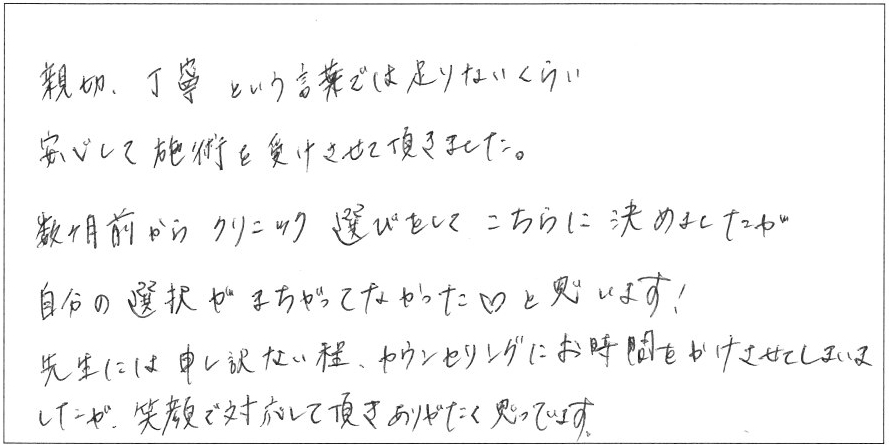 親切、丁寧という言葉では足りないくらい
安心して施術を受けさせて頂きました。
数ヶ月前からクリニック選びをしてこちらに決めましたが
自分の選択がまちがってなかった♡と思います!
先生には申し訳ない程、カウンセリングにお時間をかけさせてしまいま
したが、笑顔で対応して頂きありがたく思っています。